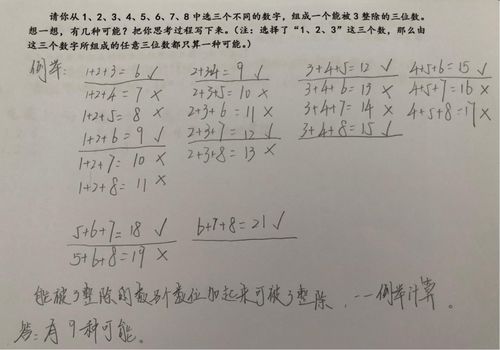 请你从1、2、3、4、5、6、7、8中选三个不同的数字，组成一个能被3整除的三位数。
想一想，有几种可能？把你思考过程写下来。（注：选择了“1、2、3”这三个数，那么由
这三个数字所组成的任意三位数都只算一种可能。）
例举：
1+2+3=6 √
1+2+4=7 ×
1+2+5=8
1+2+6=9 √
1+2+7=10 ×
1+2+8=11 ×
2+3+4=9 √
2+3+5=10 ×
2+3+6=11 ×
2+3+7=12 √
2+3+8=13 ×
3+4+5=12 √
3+4+6=13 ×
3+4+7=14 ×
3+4+8=15 √
4+5+6=15 √
4+5+7=16 ×
4+5+8=17 ×
5+6+7=18 √
5+6+8=19 ×
6+7+8=21 √
能被3整除的数各个数位加起来可被3整除，一一例举计算。
答：有9种可能。